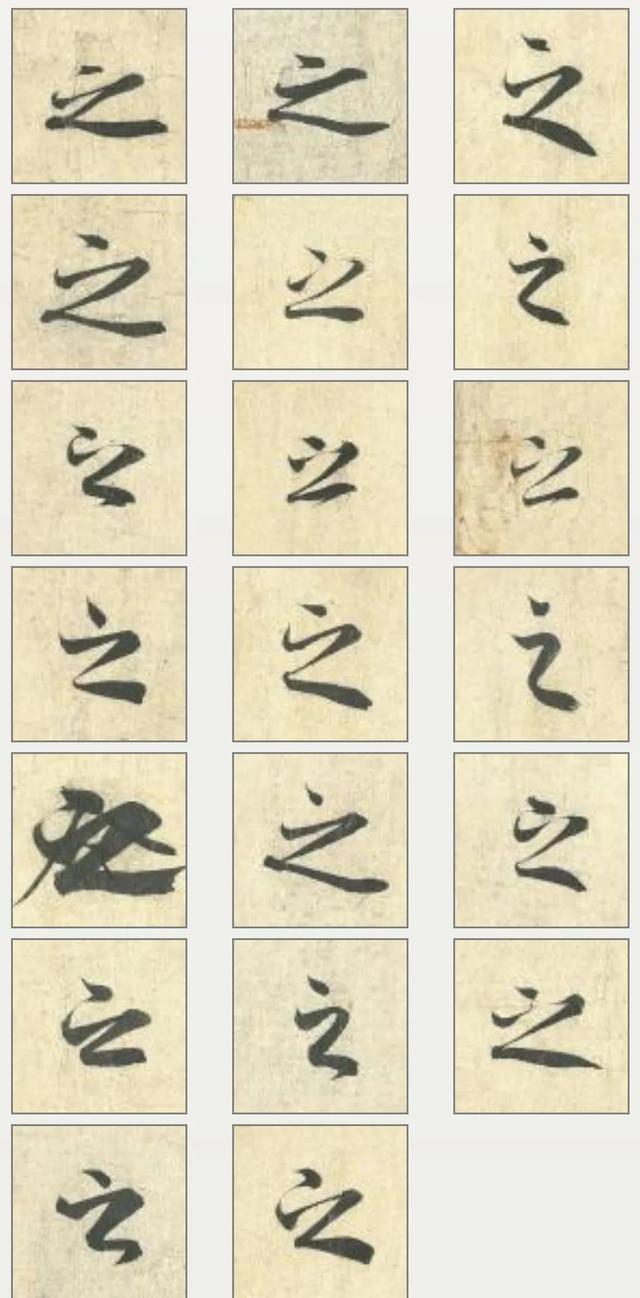 之 之 之
之 之 之
之 之 之
之 之 之
之 之 之
之 之 之
之 之